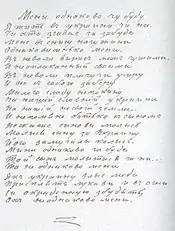 Мени однаково чи буду
Я жить въ украини чи ни.
Чи хто згадае чи забуде
Мене въ снигу на чужини
Однаковисинько мени.
Въ неволи вырисъ межъ чужими,
И неоплаканый своими
Въ неволи плачучи умру
И все зъ собою заберу
Малого слиду не покину
На нашій славній украини
На нашій не своій земли.
И не помяне батько съ сыномъ
Не скаже сынови молись
Молися сыну за Вкраину
Його замучили колись.
Мени однаково чи буде
Той сынъ молитися чи ни...
Та не однаково мени
Якъ украину злые люде
Присплять лукави и въ огни
Ии окраденую збудять..
Охъ не однаково мени.